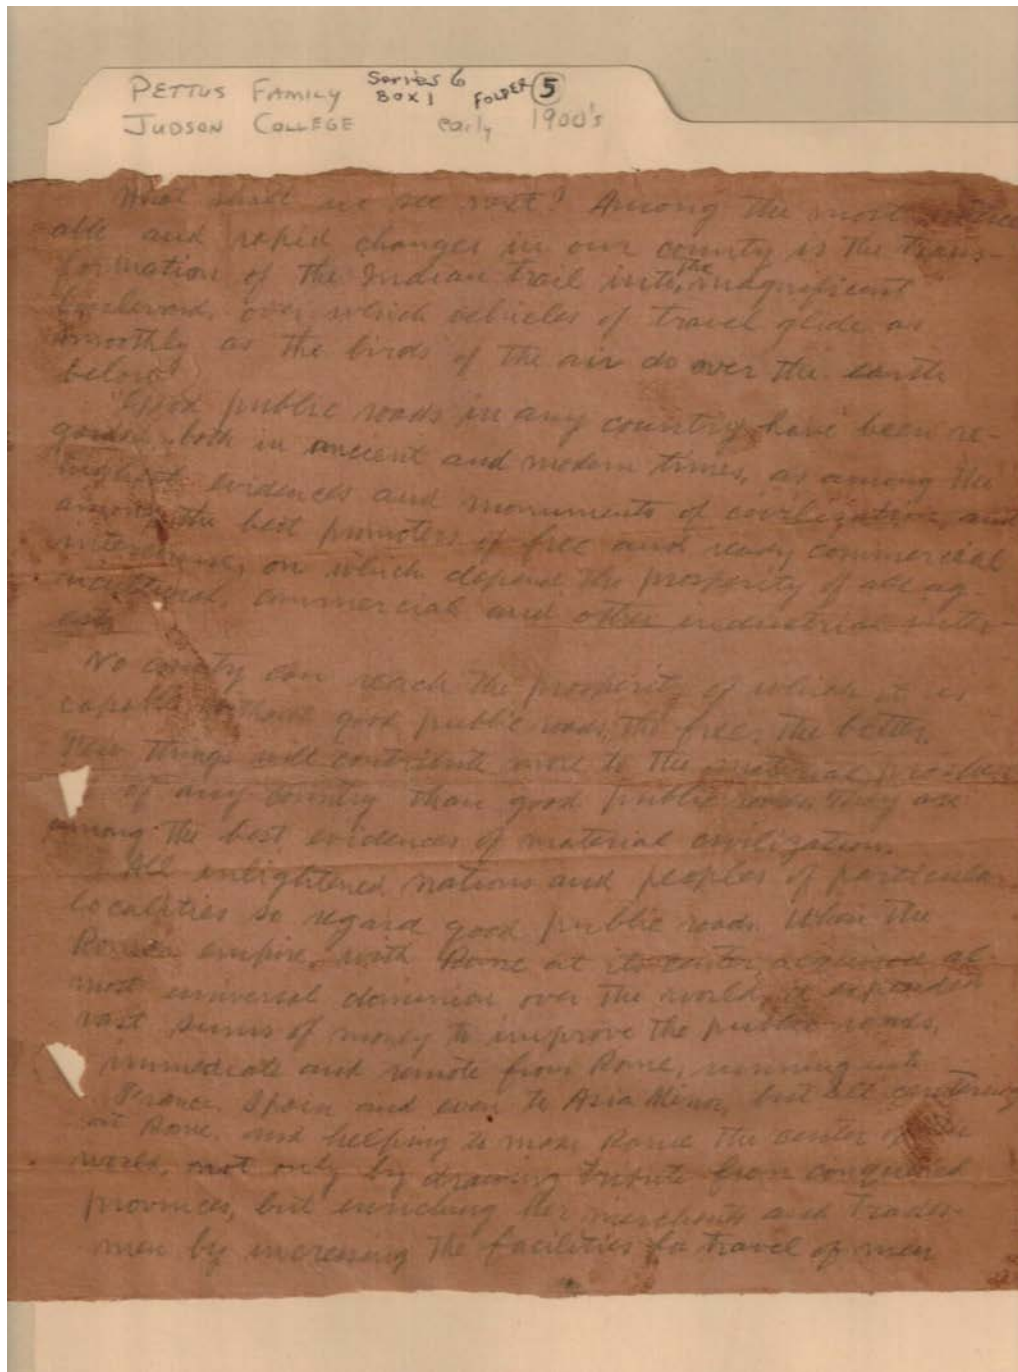 PETTUS FAMILY Series 6 BOX 1 FOLDER 5
JUDSON COLLEGE early 1900's
What shall we see next? Among the most
able and rapid changes in our county is the trans-
formation of the Indian trail into the magnificent
boulevard, over which vehicles of travel glide as
smoothly as the birds of the air do over the earth
below!
Good public roads in any country have been re-
garded, both in ancient and modern times, as among the
highest evidences and monuments of civilization, and
among the best promoters of free and ready commercial
intercourse, on which depend the prosperity of all ag-
ricultural, commercial and other industrial inter-
ests
No county can reach the prosperity of which it is
capable without good public roads, the freer the better.
Few things will contribute more to the material
of any country than good public roads. They are
among the best evidences of material civilization.
All enlightened nations and peoples of particular
localities so regard good public roads. When the
Roman empire, with Rome at its center, acquired al-
most universal dominion over the world, it expended
vast sums of money to improve the public roads,
immediate and remote from Rome, running into
France, Spain and even to Asia Minor, but all centering
at Rome, and helping to make Rome the center of the
world, not only by drawing tribute from conquered
provinces, but enriching her merchants and trades-
men by increasing the facilities for travel of men